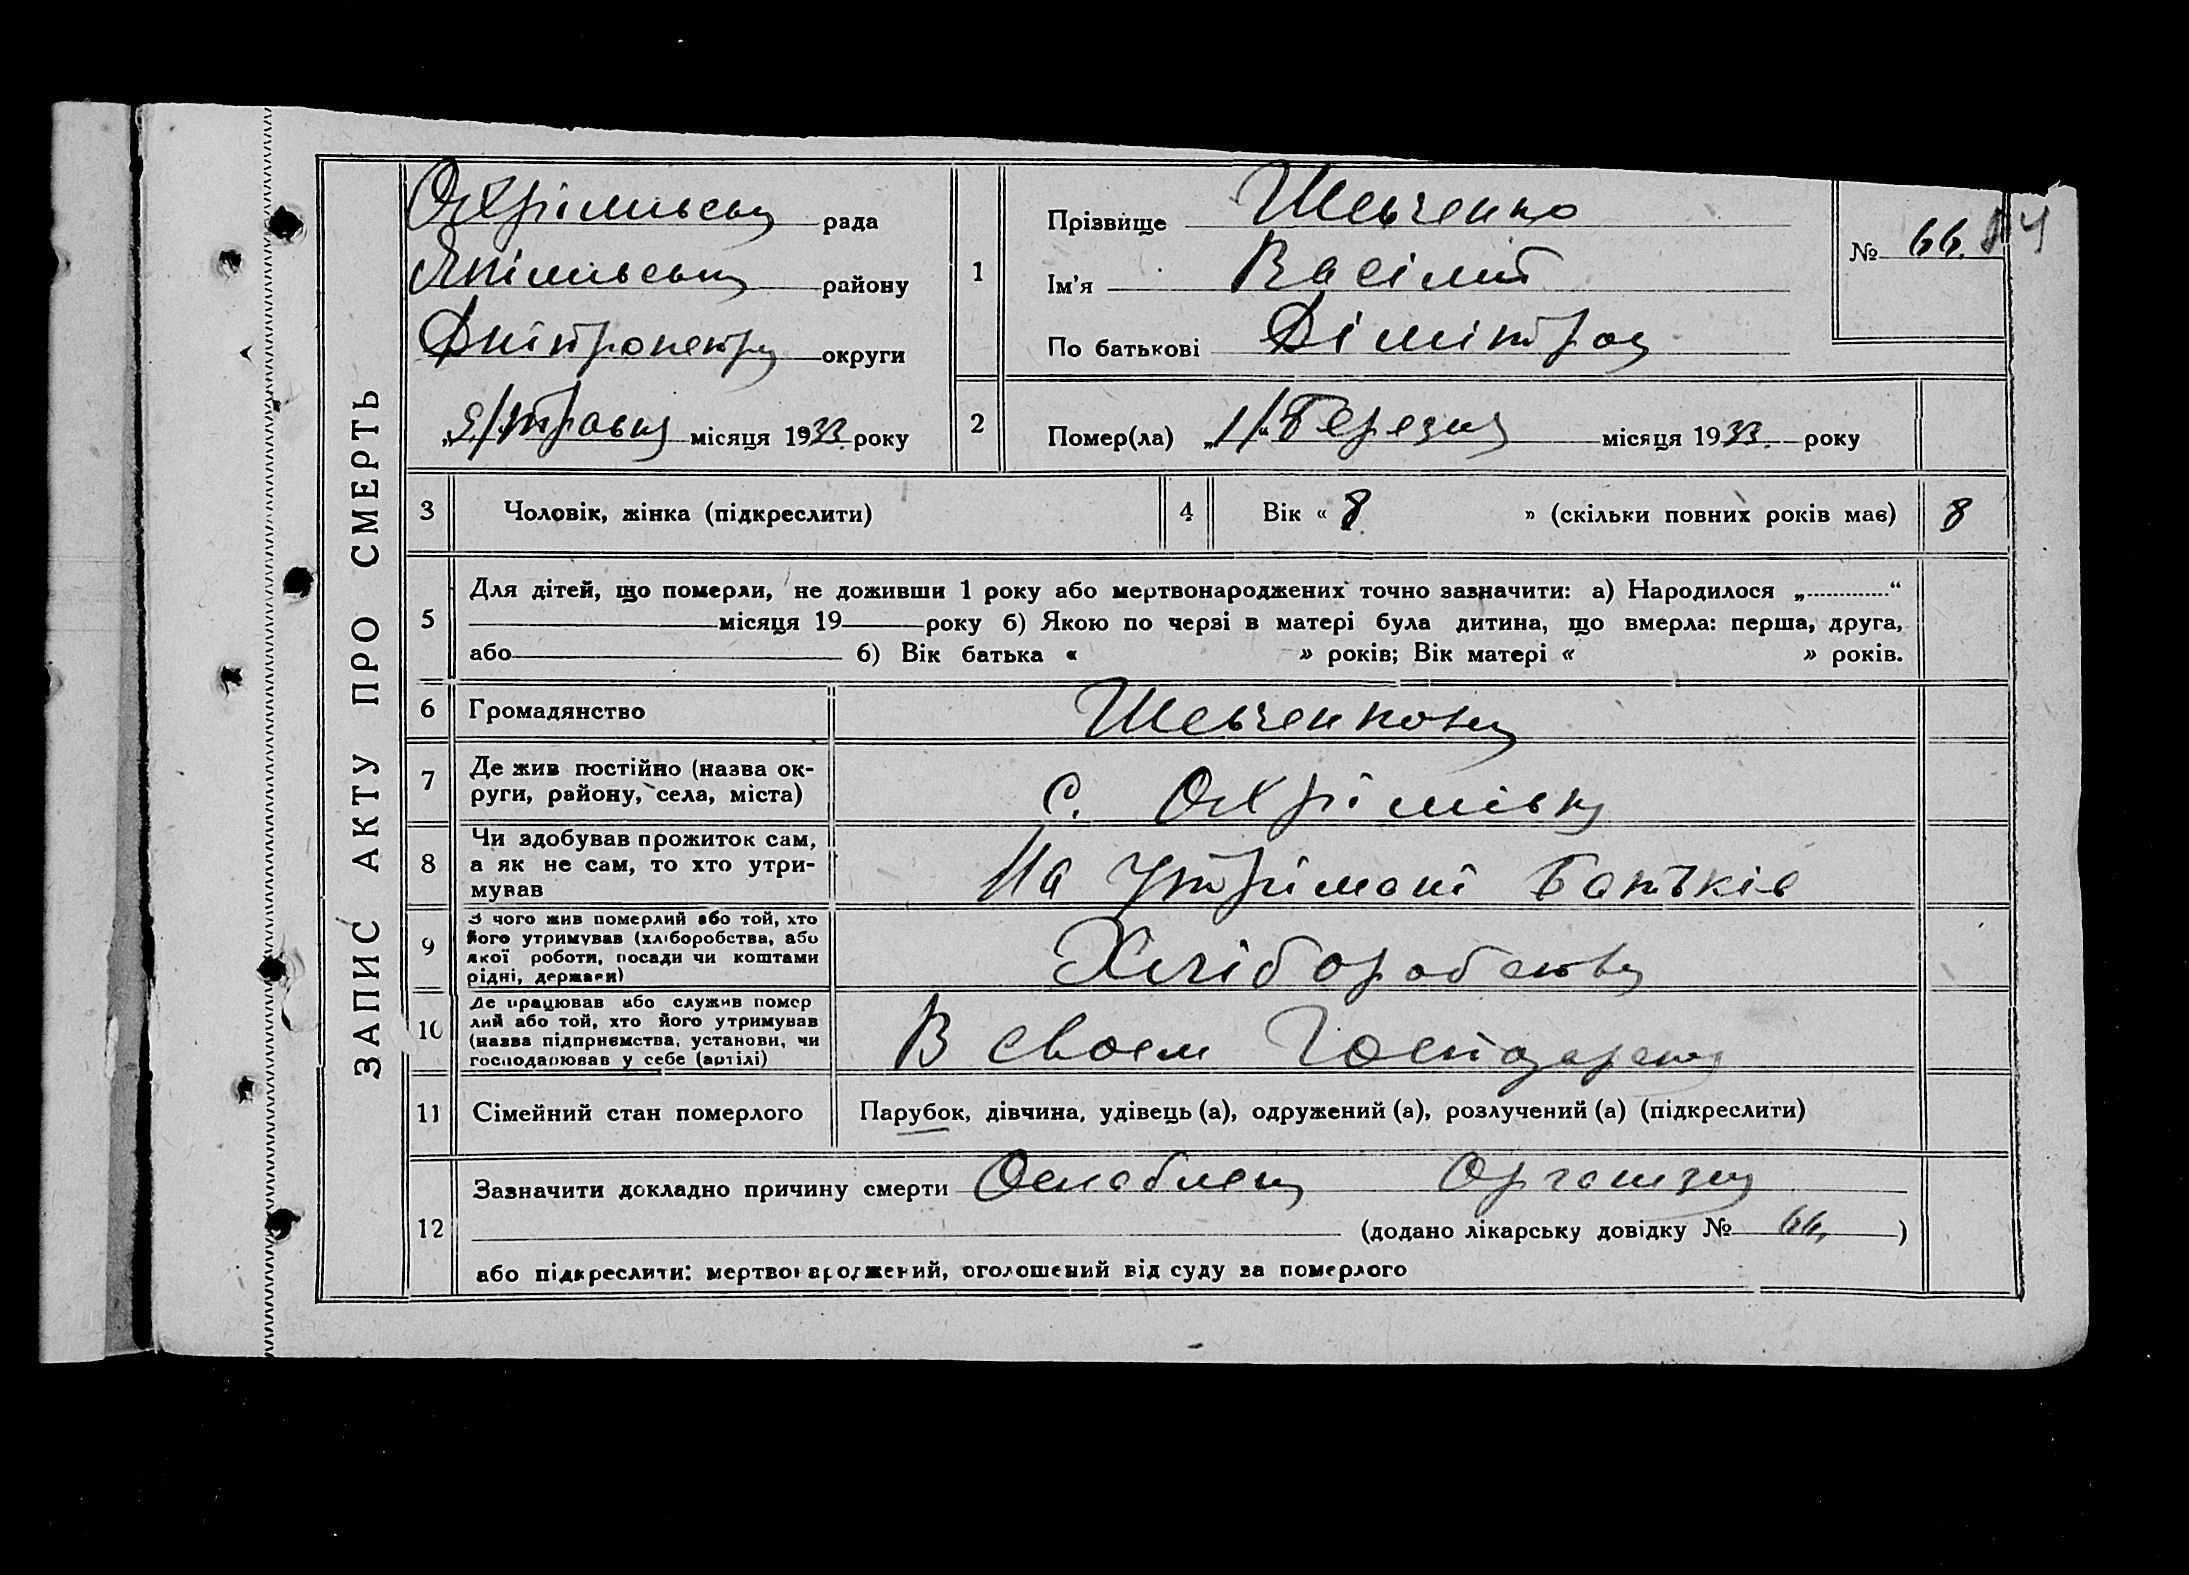 ЗАПИС АКТУ ПРО СМЕРТЬ
рада
району
округи
місяця 1933 року
1
Прізвище Шевченко
Ім'я Васілий
По батькові
№ 66.
2
Помер(ла) „1/“ Березня місяця 1933. року
3 Чоловік, жінка (підкреслити)
4 Вік « 8 » (скільки повних років має) 8
5
Для дітей, що померли, не доживши 1 року або мертвонароджених точно зазначити: а) Народилося „ “
місяця 19 року б) Якою по черзі в матері була дитина, що вмерла: перша, друга,
або б) Вік батька « » років; Вік матері « » років.
6 Громадянство
7
Де жив постійно (назва ок-
руги, району, села, міста)
с. Охріміівка
8
Чи здобував прожиток сам,
а як не сам, то хто утри-
мував
На утрімані Батьків
9
З чого жив померлий або той, хто
його утримував (хліборобства, або
якої роботи, посади чи коштами
рідні, держави)
Хліборобства
10
Де працював або служив помер
лий або той, хто його утримував
(назва підприємства, установи, чи
господарював у себе (артілі)
В своем
11 Сімейний стан померлого
Парубок, дівчина, удівець (а), одружений (а), розлучений (а) (підкреслити)
12
Зазначити докладно причину смерти
(додано лікарську довідку № 66, )
або підкреслити: мертвонароджений, оголошений від суду за померлого